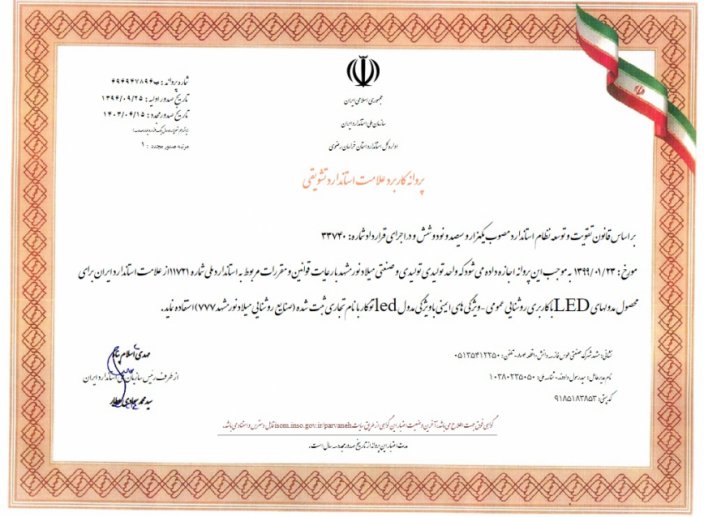 شماره پروانه : ب۴۹۴۹۴۷۸۹۴
تاریخ صدور اولیه : ۱۳۹۴/۰۹/۲۵
تاریخ صدور مجدد : ۱۴۰۲/۰۴/۱۵
مرتبه صدور مجدد : ۹
جمهوری اسلامی ایران
سازمان ملی استاندارد ایران
اداره کل استاندارد استان خراسان رضوی
پروانه کاربرد علامت استاندارد تشویقی
بر اساس قانون تقویت و توسعه نظام استاندارد مصوب یکهزار و سیصد و نود و شش و در اجرای قرارداد شماره: ۳۳۷۴۰
مورخ : ۱۳۹۹/۰۱/۲۳ به موجب این پروانه اجازه داده می شود که واحد تولیدی تولیدی و صنعتی میلاد نور مشهد با رعایت قوانین و مقررات مربوط به استاندارد ملی شماره ۱۱۷۲۱ از علامت استاندارد ایران برای
محصول مدولهای LED با کاربری روشنایی عمومی - ویژگی های ایمنی با ویژگی مدول led توکار با نام تجاری ثبت شده (صنایع روشنایی میلاد نور مشهد ۷۷۷) استفاده نماید.
نشانی: مشهد شهرک صنعتی طوس فاز سه دانش ۱ قطعه ۸۰۲ - تلفن: ۰۵۱۳۵۴۱۲۲۵۰
نام مدیرعامل: سید رسول ، شناسه ملی: ۱۰۳۸۰۲۳۵۰۵۰
کد پستی: ۹۱۸۵۱۸۳۸۵۳
مهدی اسلام پناه
از طرف رئیس سازمان ملی استاندارد ایران
سید محمد
گواهی فوق جهت اطلاع می باشد، آخرین وضعیت اعتبار این گواهی از طریق سایت isom.inso.gov.ir/parvaneh قابل دسترس و استناد می باشد.
مدت اعتبار این پروانه از تاریخ صدور مجدد سه سال است.